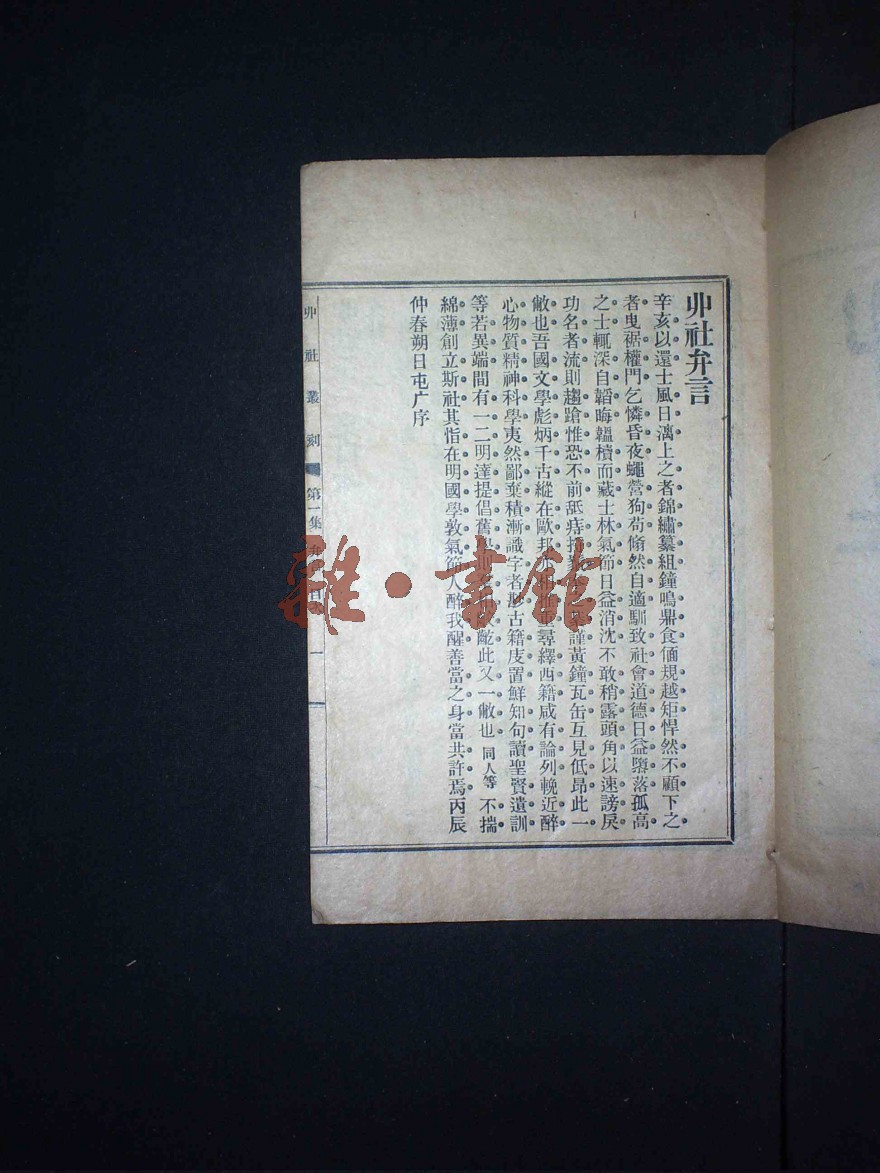 丱社弁言
辛亥以還士風日漓上之者錦繡纂組鐘鳴鼎食偭規越矩悍然不顧下之
者曳裾權門乞憐昏夜蠅營狗苟翛然自適馴致社會道德日益墮落孤高
之士輒深自韜晦韞櫝而藏士林氣節日益消沈不敢稍露頭角以速謗戾
功名者流則趨蹌惟恐不前舐痔 謹黃鐘瓦缶互見低昂此一
敝也吾國文學彪炳千古縱在歐邦亦 重尋繹西籍咸有論列輓近醉
心物質精神科學夷然鄙棄積漸識字者尠古籍庋置鮮知句讀聖賢遺訓
等若異端間有一二明達提倡舊學則 此又一敝也同人等不揣
綿薄創立斯社其恉在明國學敦氣節人醉我醒善當之身當共許焉丙辰
仲春朔日屯广序
丱社叢刻
第一集
一
雜·書館